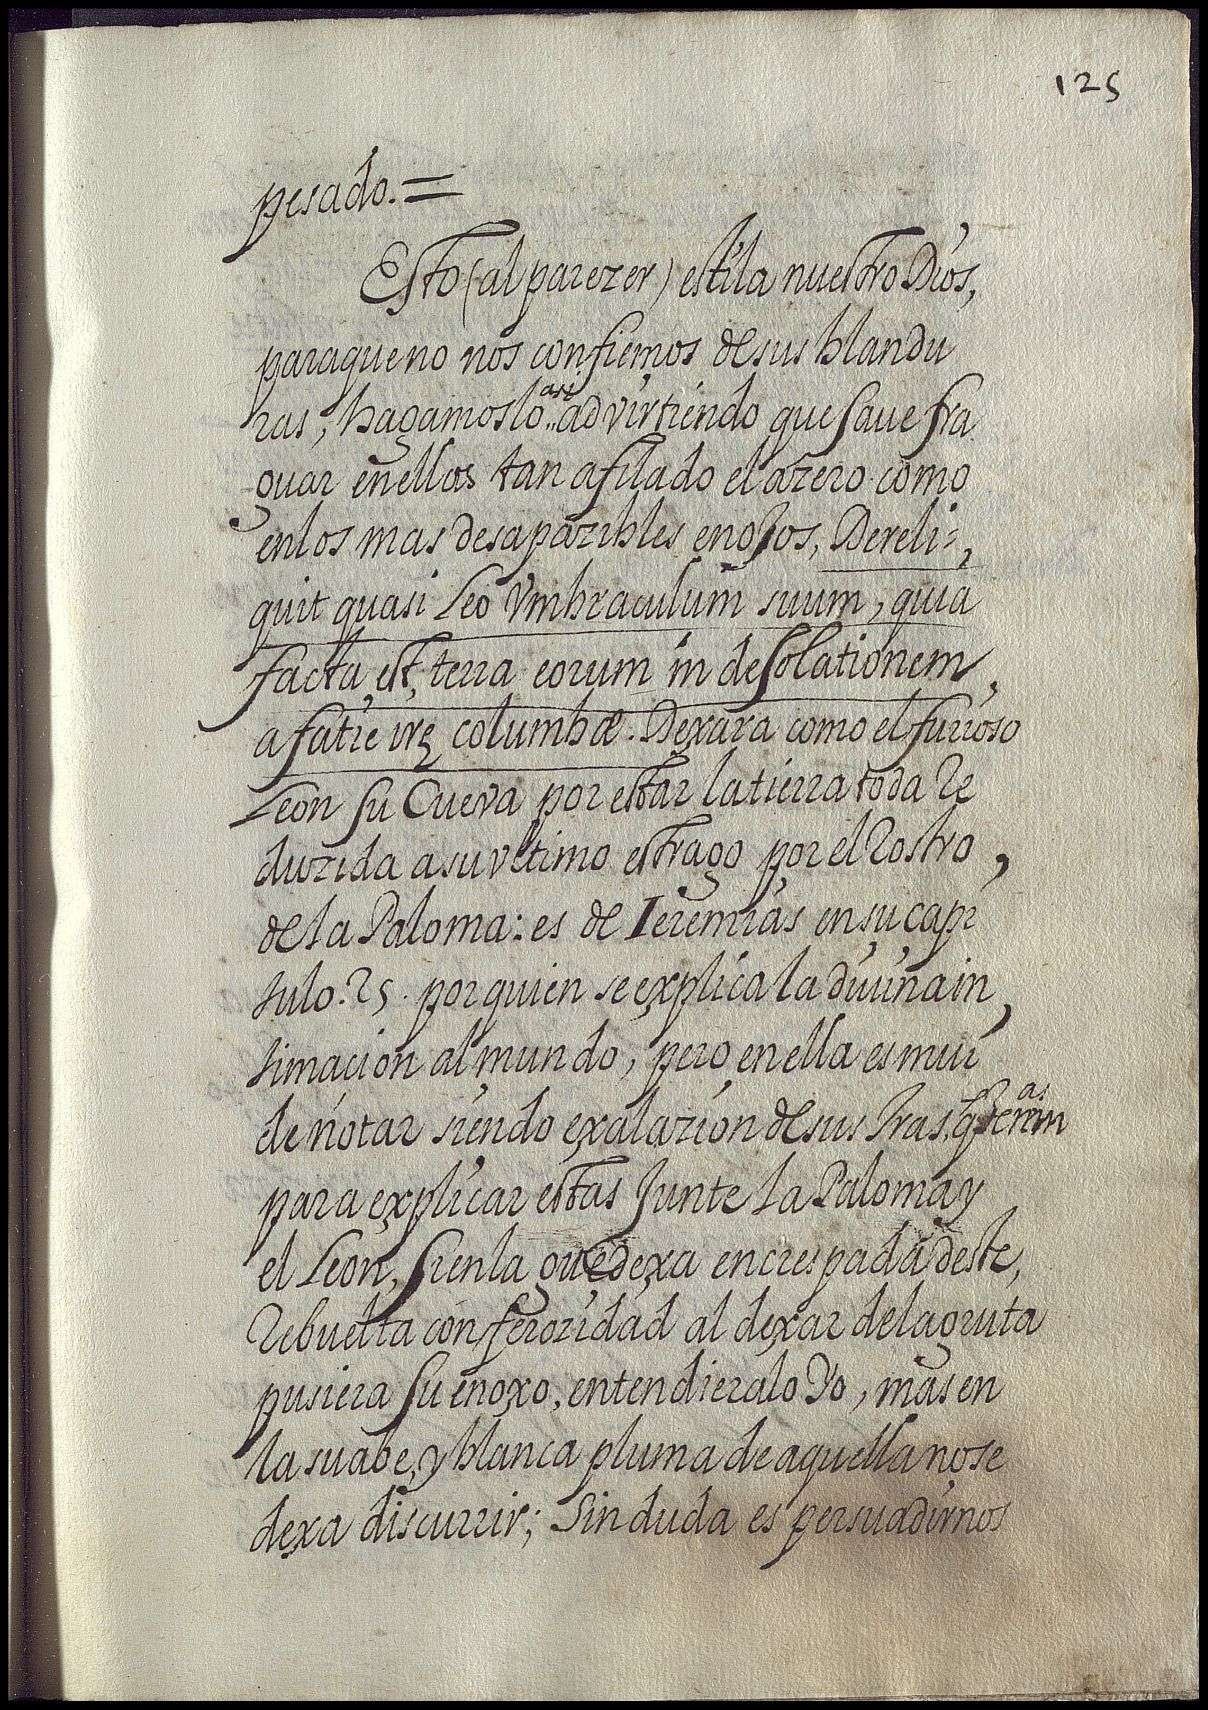 125
pesado.=
Esto (al parezer) estila nuestro Dios,
paraque no nos confiemos de sus blandu
ras, hagamoslo asi advirtiendo que save fra
guar en ellas tan afilado el azero como
en los mas desapazibles enojos, Dereli-
quit quasi Leo Vmbraculum suum, quia
facta est, terra eorum in desolationem,
a fatie irę columbæ. Dexara como el furioso
Leon su Cueva por estar la tierra toda Re
duzida a su vltimo estrago por el Rostro,
de la Paloma: es de Ieremias en su capi
tulo. 25. por quien se explica la diuina in,
timacion al mundo, pero en ella es mui
de notar siendo exalazion de sus Iras, q̃
para explicar estas Junte la Paloma y
el Leon, si en la guedexa encrespada deste,
Rebuelta con ferozidad al dexar de la gruta
pusiera su enoxo, entendieralo Yo, mas en
la suabe, y blanca pluma de aquella no se
dexa discurrir; Sin duda es persuadirnos